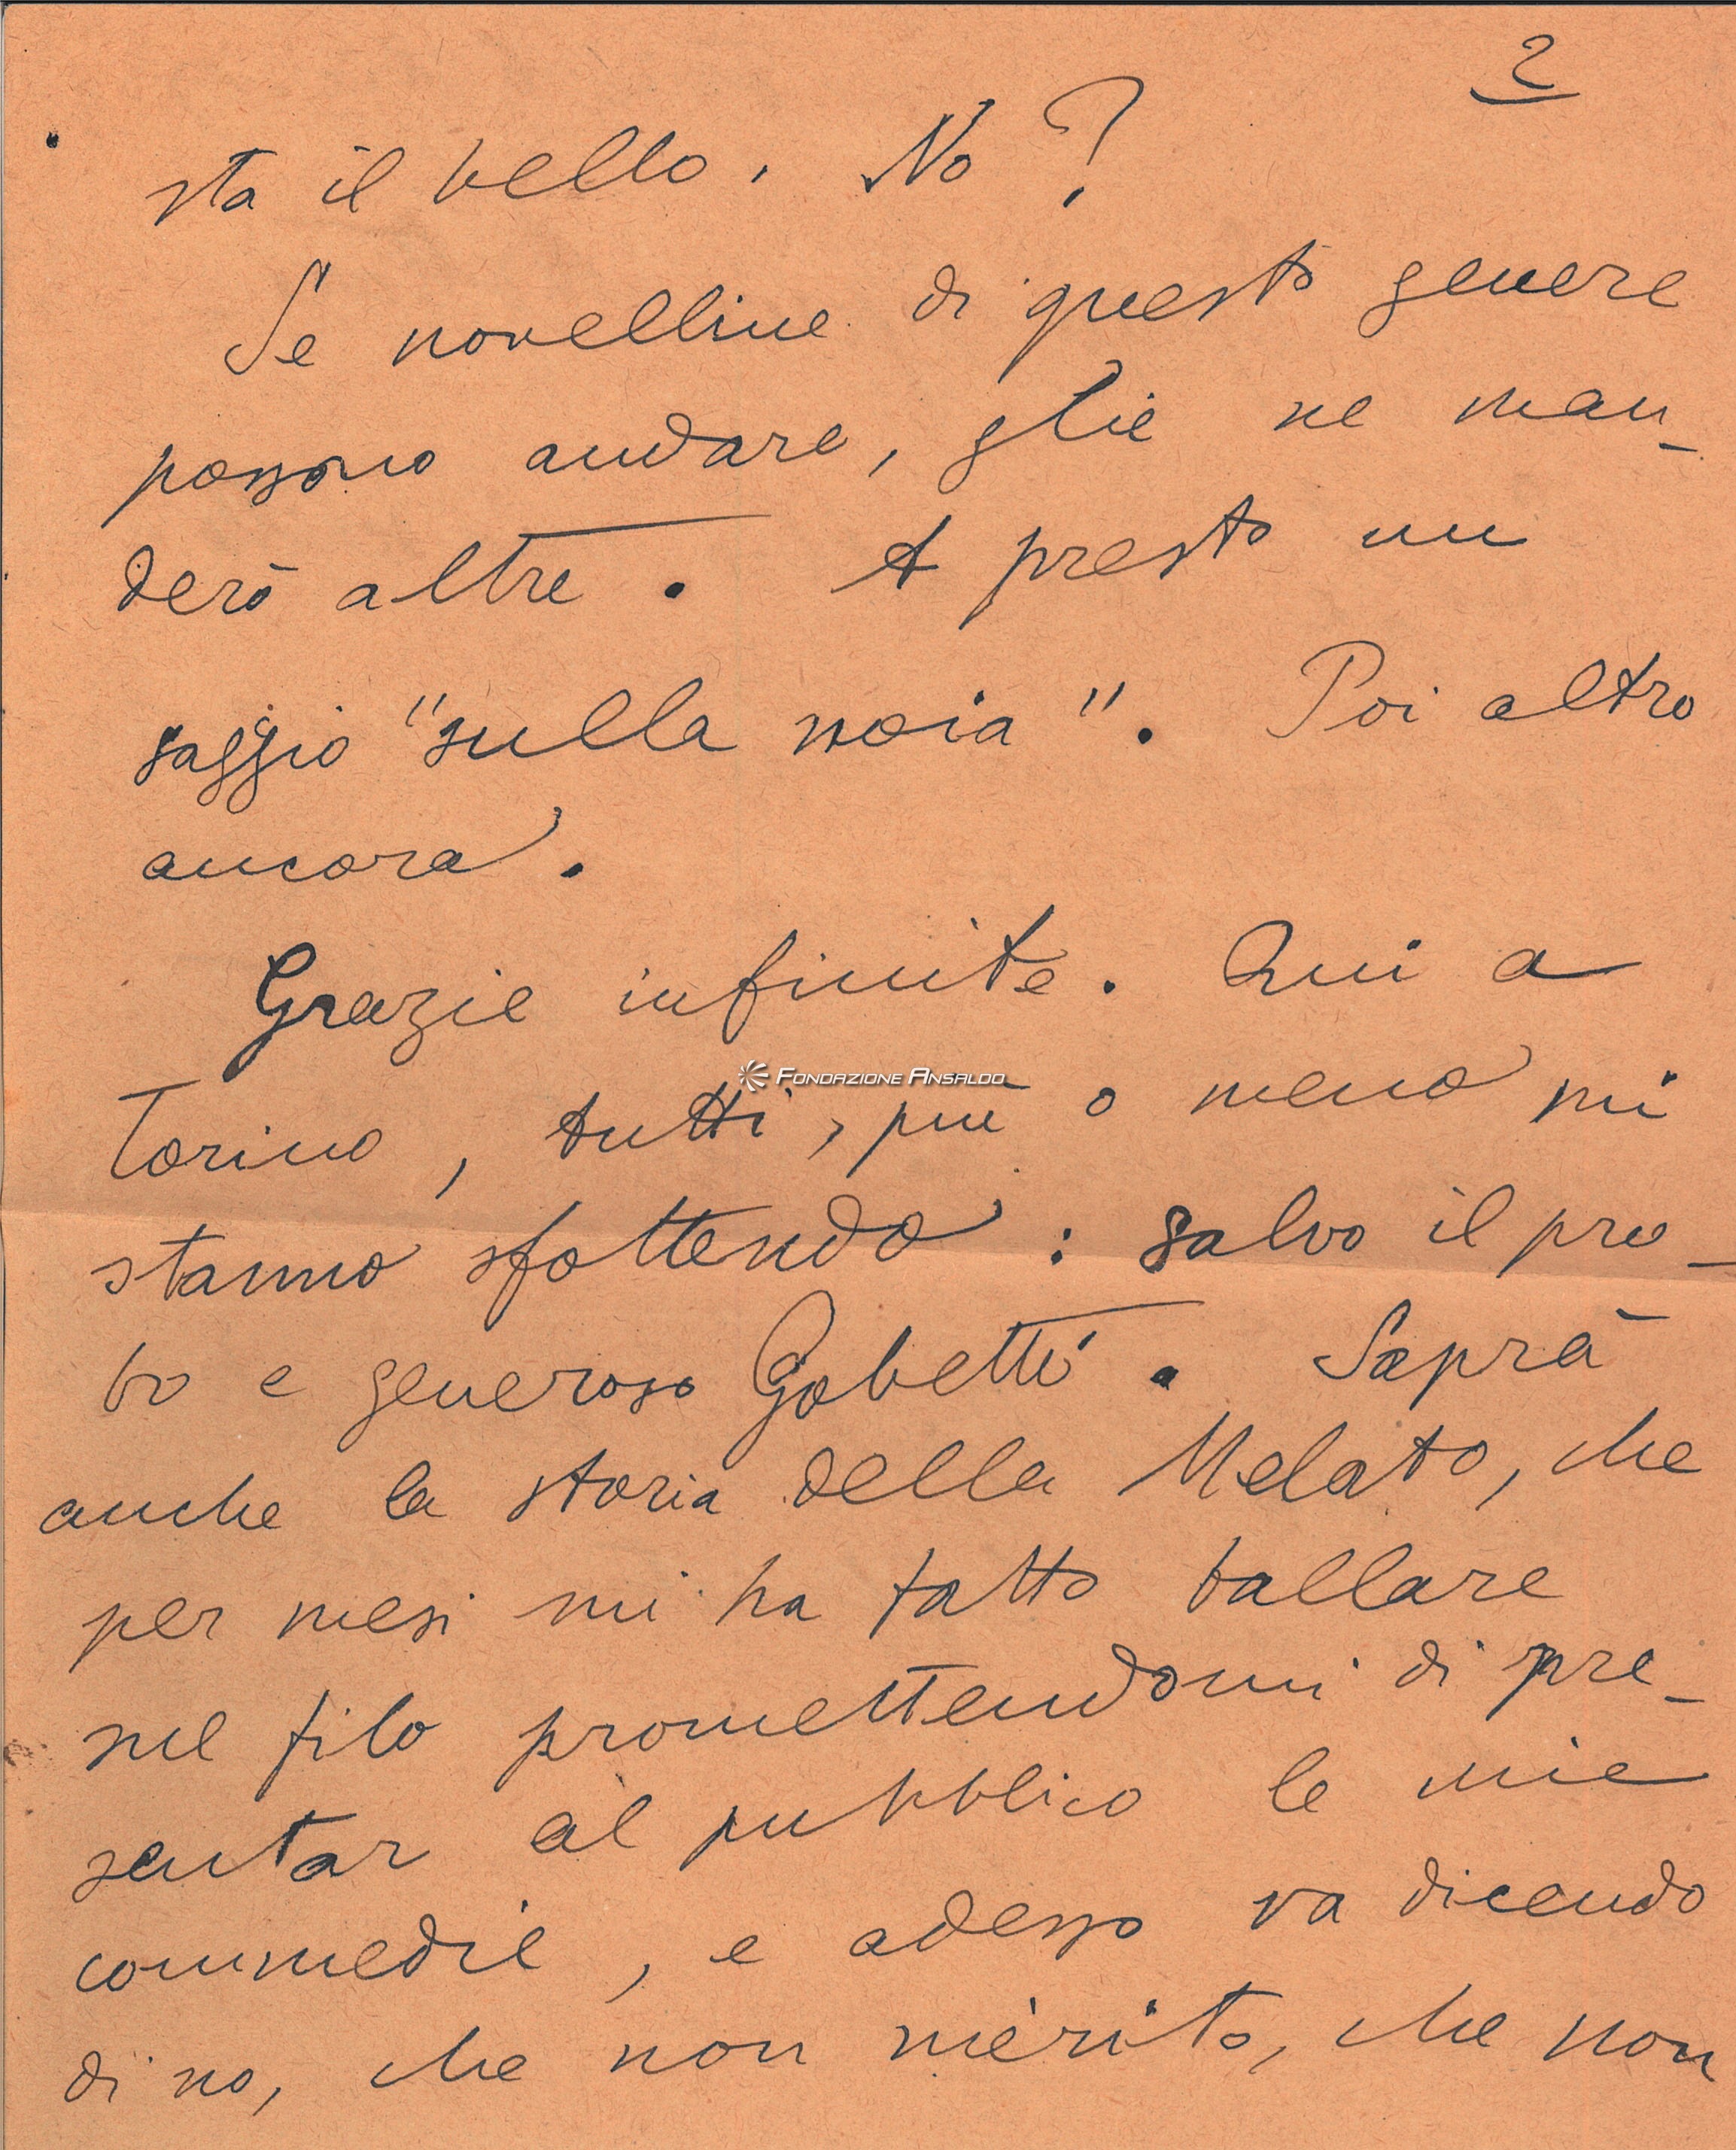 2
sta il bello. No?
Se novelline di questo genere
possono andare, glie ne man_
derò altre. A presto un
saggio "sulla noia". Poi altro
ancora.
Grazie infinite. Qui a
FONDAZIONE ANSALDO
Torino, tutti, più o meno mi
stanno sfottendo: salvo il pro_
bo e generoso Gobetti. Saprà
anche la storia della Melato, che
per mesi mi ha fatto ballare
sul filo promettendomi di pre_
sentar al pubblico le mie
commedie, e adesso va dicendo
di no, che non mèrito, che non